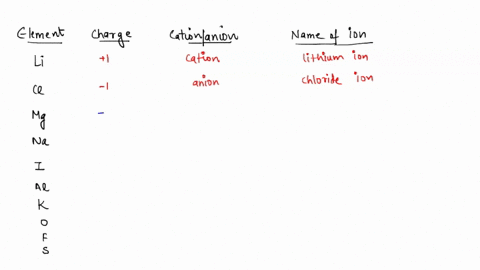 Element Charge Cation/anion Name of ion
Li +1 cation lithium ion
Cl -1 anion chloride ion
Mg -
Na
I
Al
K
O
F
S